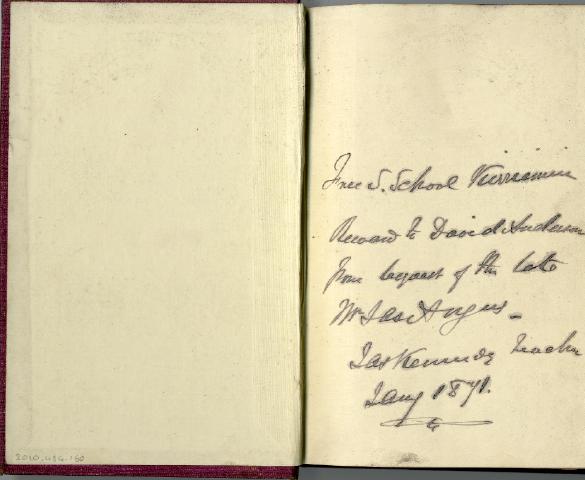 Free S. School Kirriemuir
Reward to David Anderson
from bequest of the late
Mr Jas Angus -
Jas Kennedy Teacher
Jany 1871.
2010.486.160